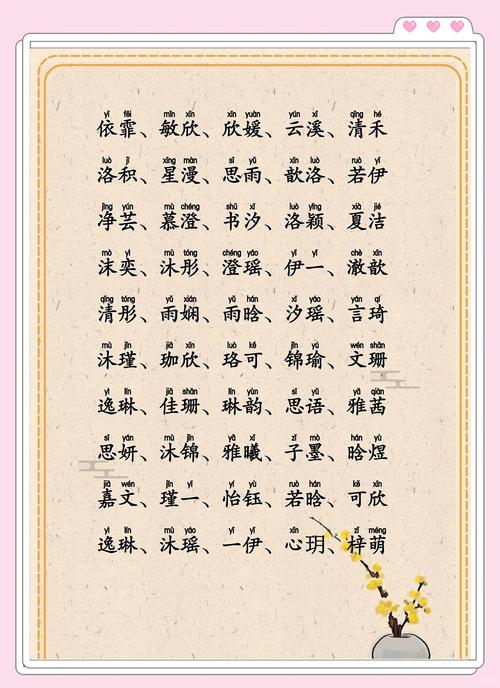 yī fēi mǐn xīn xīn yuàn yún xī qīng hé
依霏、敏欣、欣媛、云溪、清禾
luò jī xīng màn sī yǔ xīn luò ruò yī
洛积、星漫、思雨、歆洛、若伊
jìng yún mù chéng shū xī luò yǐng xià jié
净芸、慕澄、书汐、洛颖、夏洁
mù yì mù tóng chéng yáo yī yī chè xīn
沐奕、沐彤、澄瑶、伊一、澈歆
qīng tóng yǔ xián yǔ hán xī yáo yán qí
清彤、雨娴、雨晗、汐瑶、言琦
mù jǐn jiā xīn luò kě jǐn yú wén shān
沐瑾、珈欣、珞可、锦瑜、文珊
yì lín jiā shān lín yùn sī yǔ yǎ qiàn
逸琳、佳珊、琳韵、思语、雅茜
sī yán mù jǐn yǎ xī zǐ mò hán yù
思妍、沐锦、雅曦、子墨、晗煜
jiā wén jǐn yī yí yù ruò hán kě xīn
嘉文、瑾一、怡钰、若晗、可欣
yì lín mù yáo yī yī xīn zǐ méng
逸琳、沐瑶、一伊、心玥、梓萌